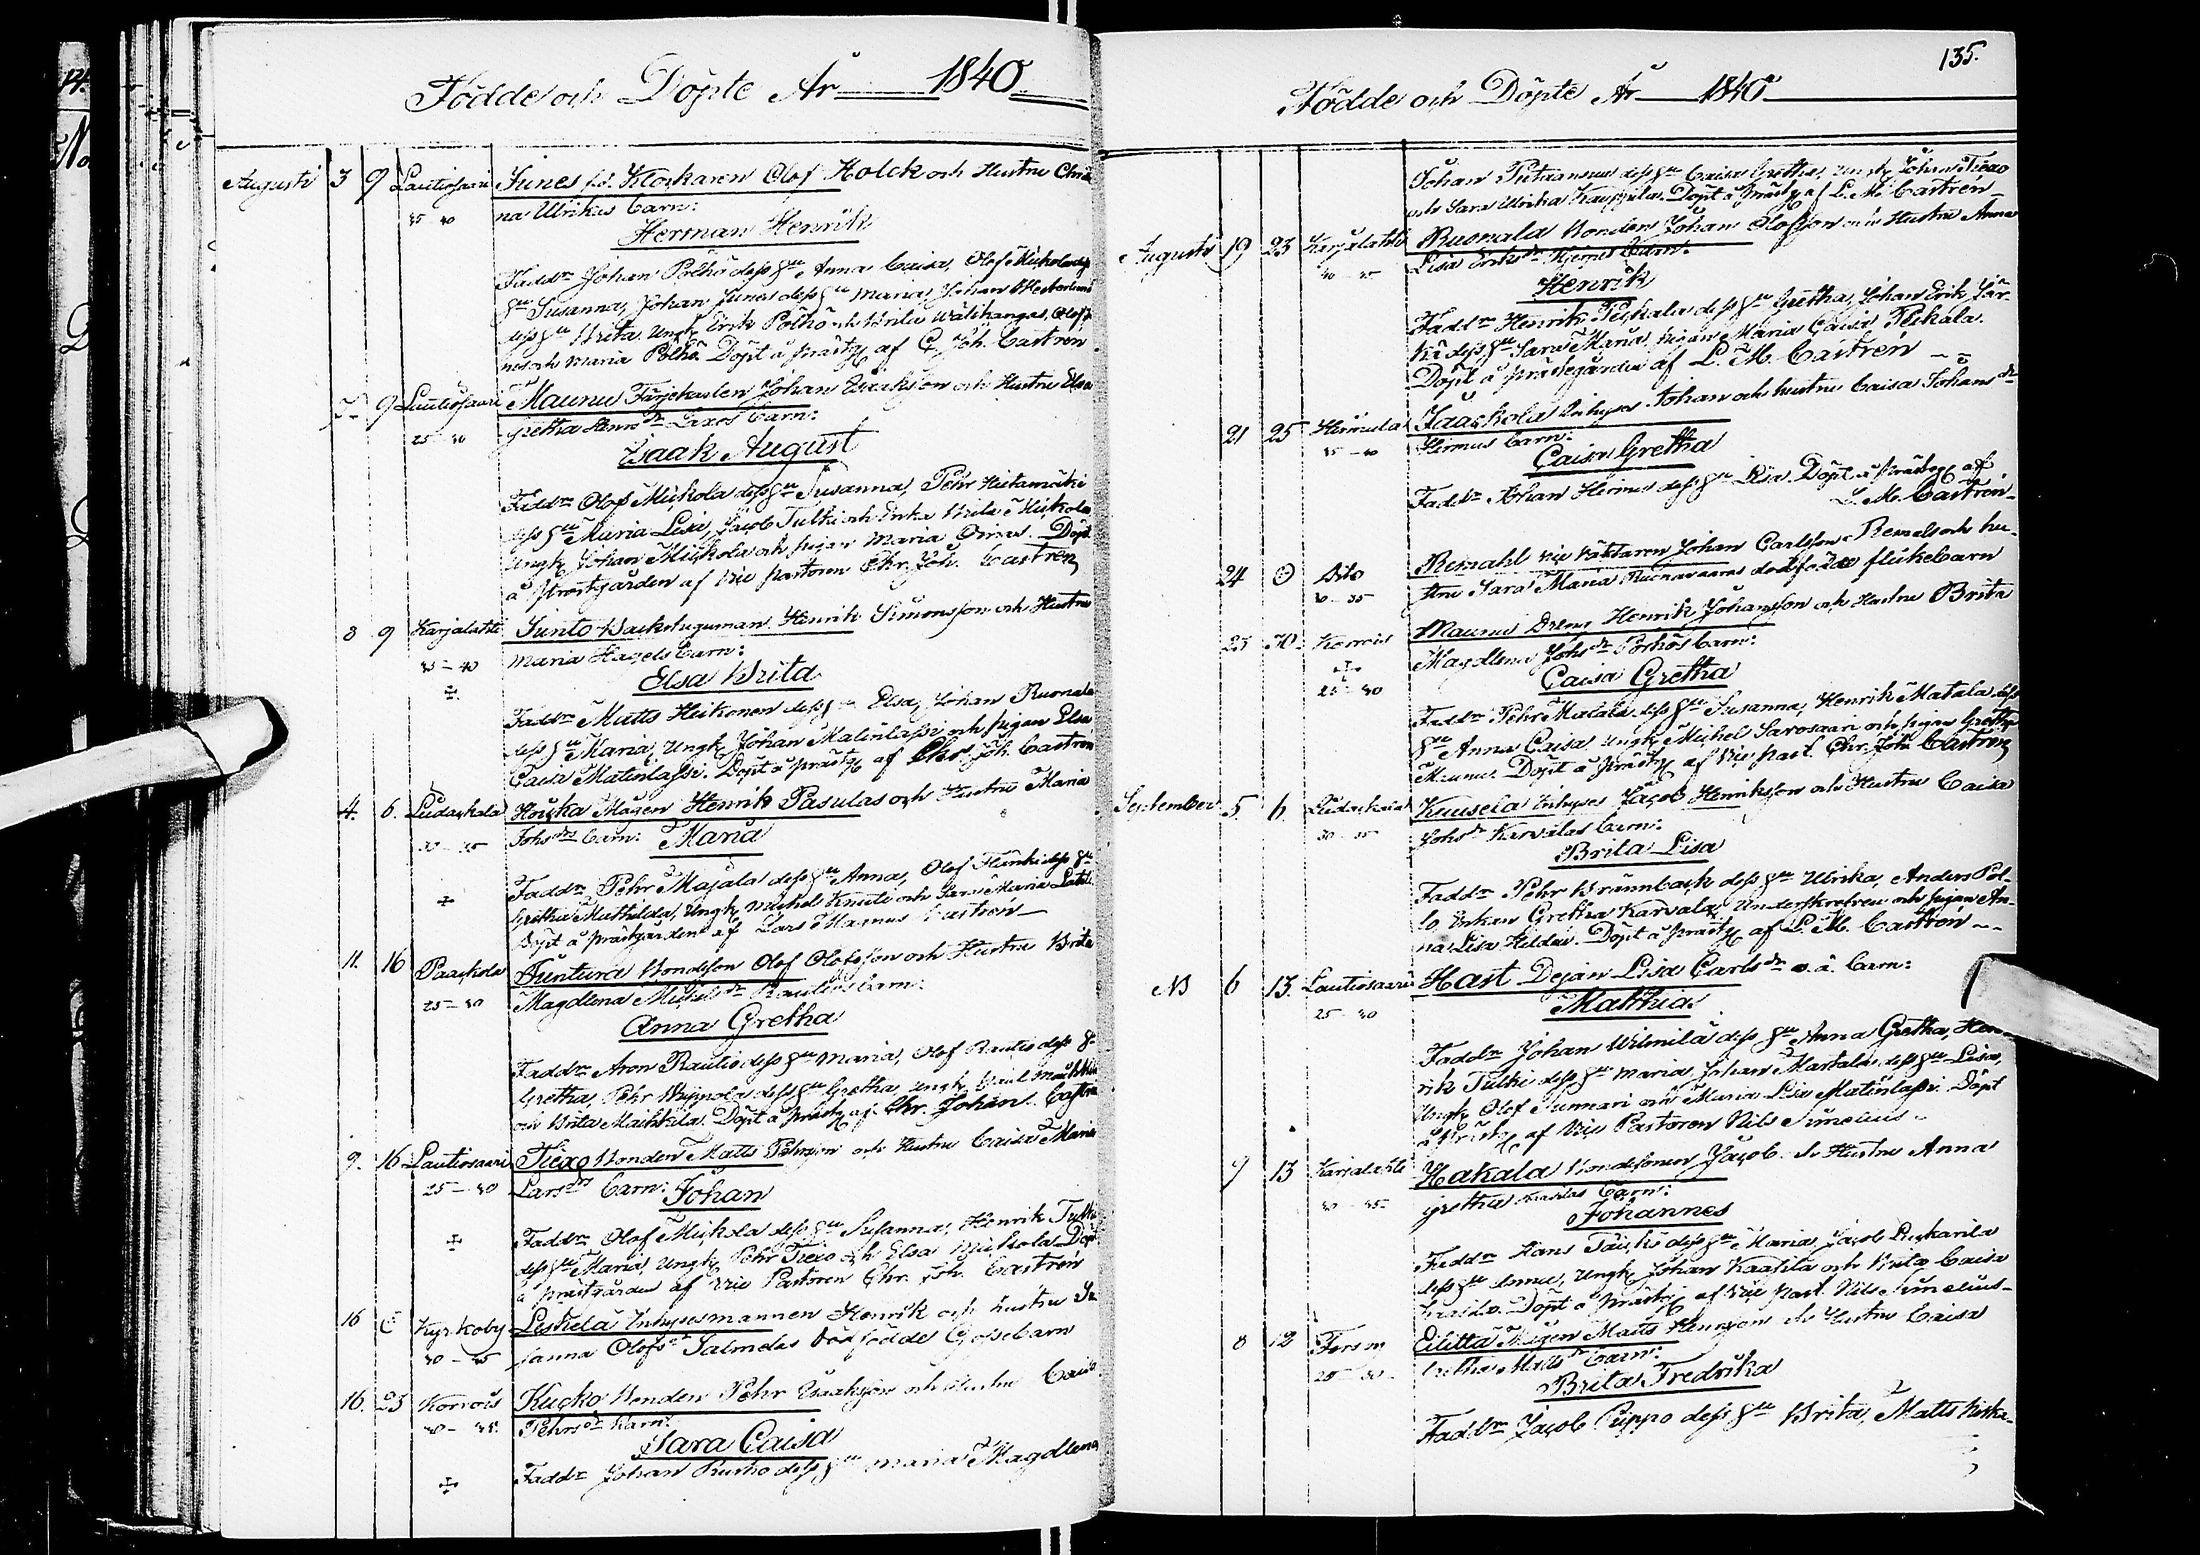 Födde och Döpte År 1840
Augusti 3 9 Lautiosaari Junes f.d. Klockaren Olof Holck och Hustru Christi
35 40 na Ulrikas Barn:
Herman Henrik
Faddr Johan Pölhö dess Hu Anna Caisa, Olof Mickola dess
Hu Susanna, Johan Junes dess Hu Maria, Johan
dess Hu Brita. Ungk. Erik Pölhö och Brita Wälikangas, Olof Ju
nes och Maria Pölhö. Döpt å Prästg af C. Joh. Castrén
5 9 Lautiosaari Maunu Färjekarlen Johan Isaksson och Hustru Elsa
25 30 Gretha Henrs dr Laxos Barn:
Isaak August
Faddr Olof Mickola dess Hu Susanna, Pehr Hietamäki
dess Hu Maria Lisa, Jacob Tulki och Enka Brita Mickola
Ungk Johan Mickola och pigan Maria Oinas. Döpt
å Prästgården af Vice Pastoren Chr. Joh. Castrén
8 9 Karjalahti Junto Backstuguman Henrik Simonsson och Hustru
35 - 40 Maria Hagels Barn:
Elsa Brita
Faddr Matts Heikonen dess Hu Elsa, Johan Ruonala
dess Hu Maria, Ungk Johan Matinlassi och pigan Elsa
Caisa Matinlassi. Döpt å Prästg af Chr. Joh. Castrén
4. 6. Rudackala Houka Mågen Henrik Pasulas och Hustru Maria
30 - 35 Johs drs Barn: Maria
Faddr Pehr Majala dess Hu Anna, Olof dess Hu
Gretha Mathilda, Ungk Michel Knuti och Sara Maria
Döpt å Prästgården af Lars Magnus Castrén
11. 16 Paackola Juntura Bondeson Olof Olofsson och Hustru Brita
25 - 30 Magdlena Michels dr Rautios Barn:
Anna Gretha
Faddr Aron Rautio dess Hu Maria, Olof Rautio dess Hu
Gretha, Pehr dess Hu Gretha, Ungk
och Brita Maikkila. Döpt å Prästg af Chr. Johan Castrén
9. 16 Lautiosaari Tiexo Bonden Matts Pehrsson och Hustru Caisa Maria
25 - 30 Lars drs Barn: Johan
Faddr Olof Mickola dess Hu Susanna, Henrik Tulki
dess Hu Maria, Ungk Pehr Tiexo och Elsa Mickola. Döpt
å Prästgården af Vice Pastoren Chr. Joh. Castrén
16 Kyrkoby Leskelä Inhysesmannen Henrik och hustru Su
30 - 35 sanna Olofs dr Salmelas Dödfödde Gossebarn
16. 23 Korrois Kucko Bonden Pehr Isaksson och Hustru Caisa
30 - 35 Pehrs dr Barn:
Sara Caisa
Faddr Johan dess Hu Maria Magdlena
135.
Födde och Döpte År 1840
Johan dess Hu Caisa Gretha, Ungk Johan Tiexo
och Sara Ulrika Kauppila. Döpt å Prästg af L. M. Castrén
Augusti 19 23 Karjalahti Ruonala Bonden Johan Olofsson och Hustru Anna
40 - 45 Lisa Eriks dr Barn:
Henrik
Faddr Henrik Peckala dess Hu Gretha, Johan Erik Jär
ki dess Hu Sara Maria, pigan Maria Caisa Peckala.
Döpt å Prästgården af L. M. Castrén
21 25 Hirmula Jaackola Inhyses Johan och hustru Caisa Johans dr
35 - 40 Hirmus Barn:
Caisa Gretha
Faddr Johan Hirmu dess Hu Lisa. Döpt å Prästg af
L. M. Castrén
24 Dito Remahl vice väktaren Johan Carlsson Remals och hu
30 - 35 stru Sara Maria Ruonavaaras dödfödde flickebarn
23 30 Korrois Maunu Dreng Henrik Johansson och Hustru Brita
25 - 30 Magdlena Johs dr Pörhös Barn:
Caisa Gretha
Faddr Pehr Matala dess Hu Susanna, Henrik Matala dess
Hu Anna Caisa, Ungk Michel Sarvosaari och pigan Gretha
Maunu. Döpt å Prästg af Vice Past. Chr. Joh. Castrén
September 5 6 Rudackala Knuisela Inhyses Jacob Henriksson och Hustru Caisa
30 - 35 Johs dr Karvalas Barn:
Brita Lisa
Faddr Pehr Brännback dess Hu Ulrika, Anders Pöl
lö, Enkan Gretha Karvala, Underskrefven och pigan An
na Lisa. Döpt å Prästg af L. M. Castrén
NB 6 13. Lautiosaari Hast Dejan Lisa Carls dr o.ä. Barn:
25 - 30 Matthias
Faddr Johan Wilmila dess Hu Anna Gretha, Hen
rik Tulki dess Hu Maria, Johan Martala dess Hu Lisa,
Ungk Olof Sunnari och Maria Lisa Matinlassi. Döpt
å Prästg af Vice Pastoren Nils Simelius
9 13 Karjalahti Hakala Bondesonen Jacob och Hustru Anna
30 - 35 Gretha Barn:
Johannes
Faddr Hans dess Hu Maria, Jacob
dess Hu Anna, Ungk Johan Kaasila och Brita Caisa
Döpt å Prästg af Vice Past. Nils Simelius
8 12 Torne Eilitta Mågen Matts Henrsson och Hustru Caisa
25 - 30 Gretha Matts dr Barn:
Brita Fredrika
Faddr Jacob Puppo dess Hu Brita, Matts